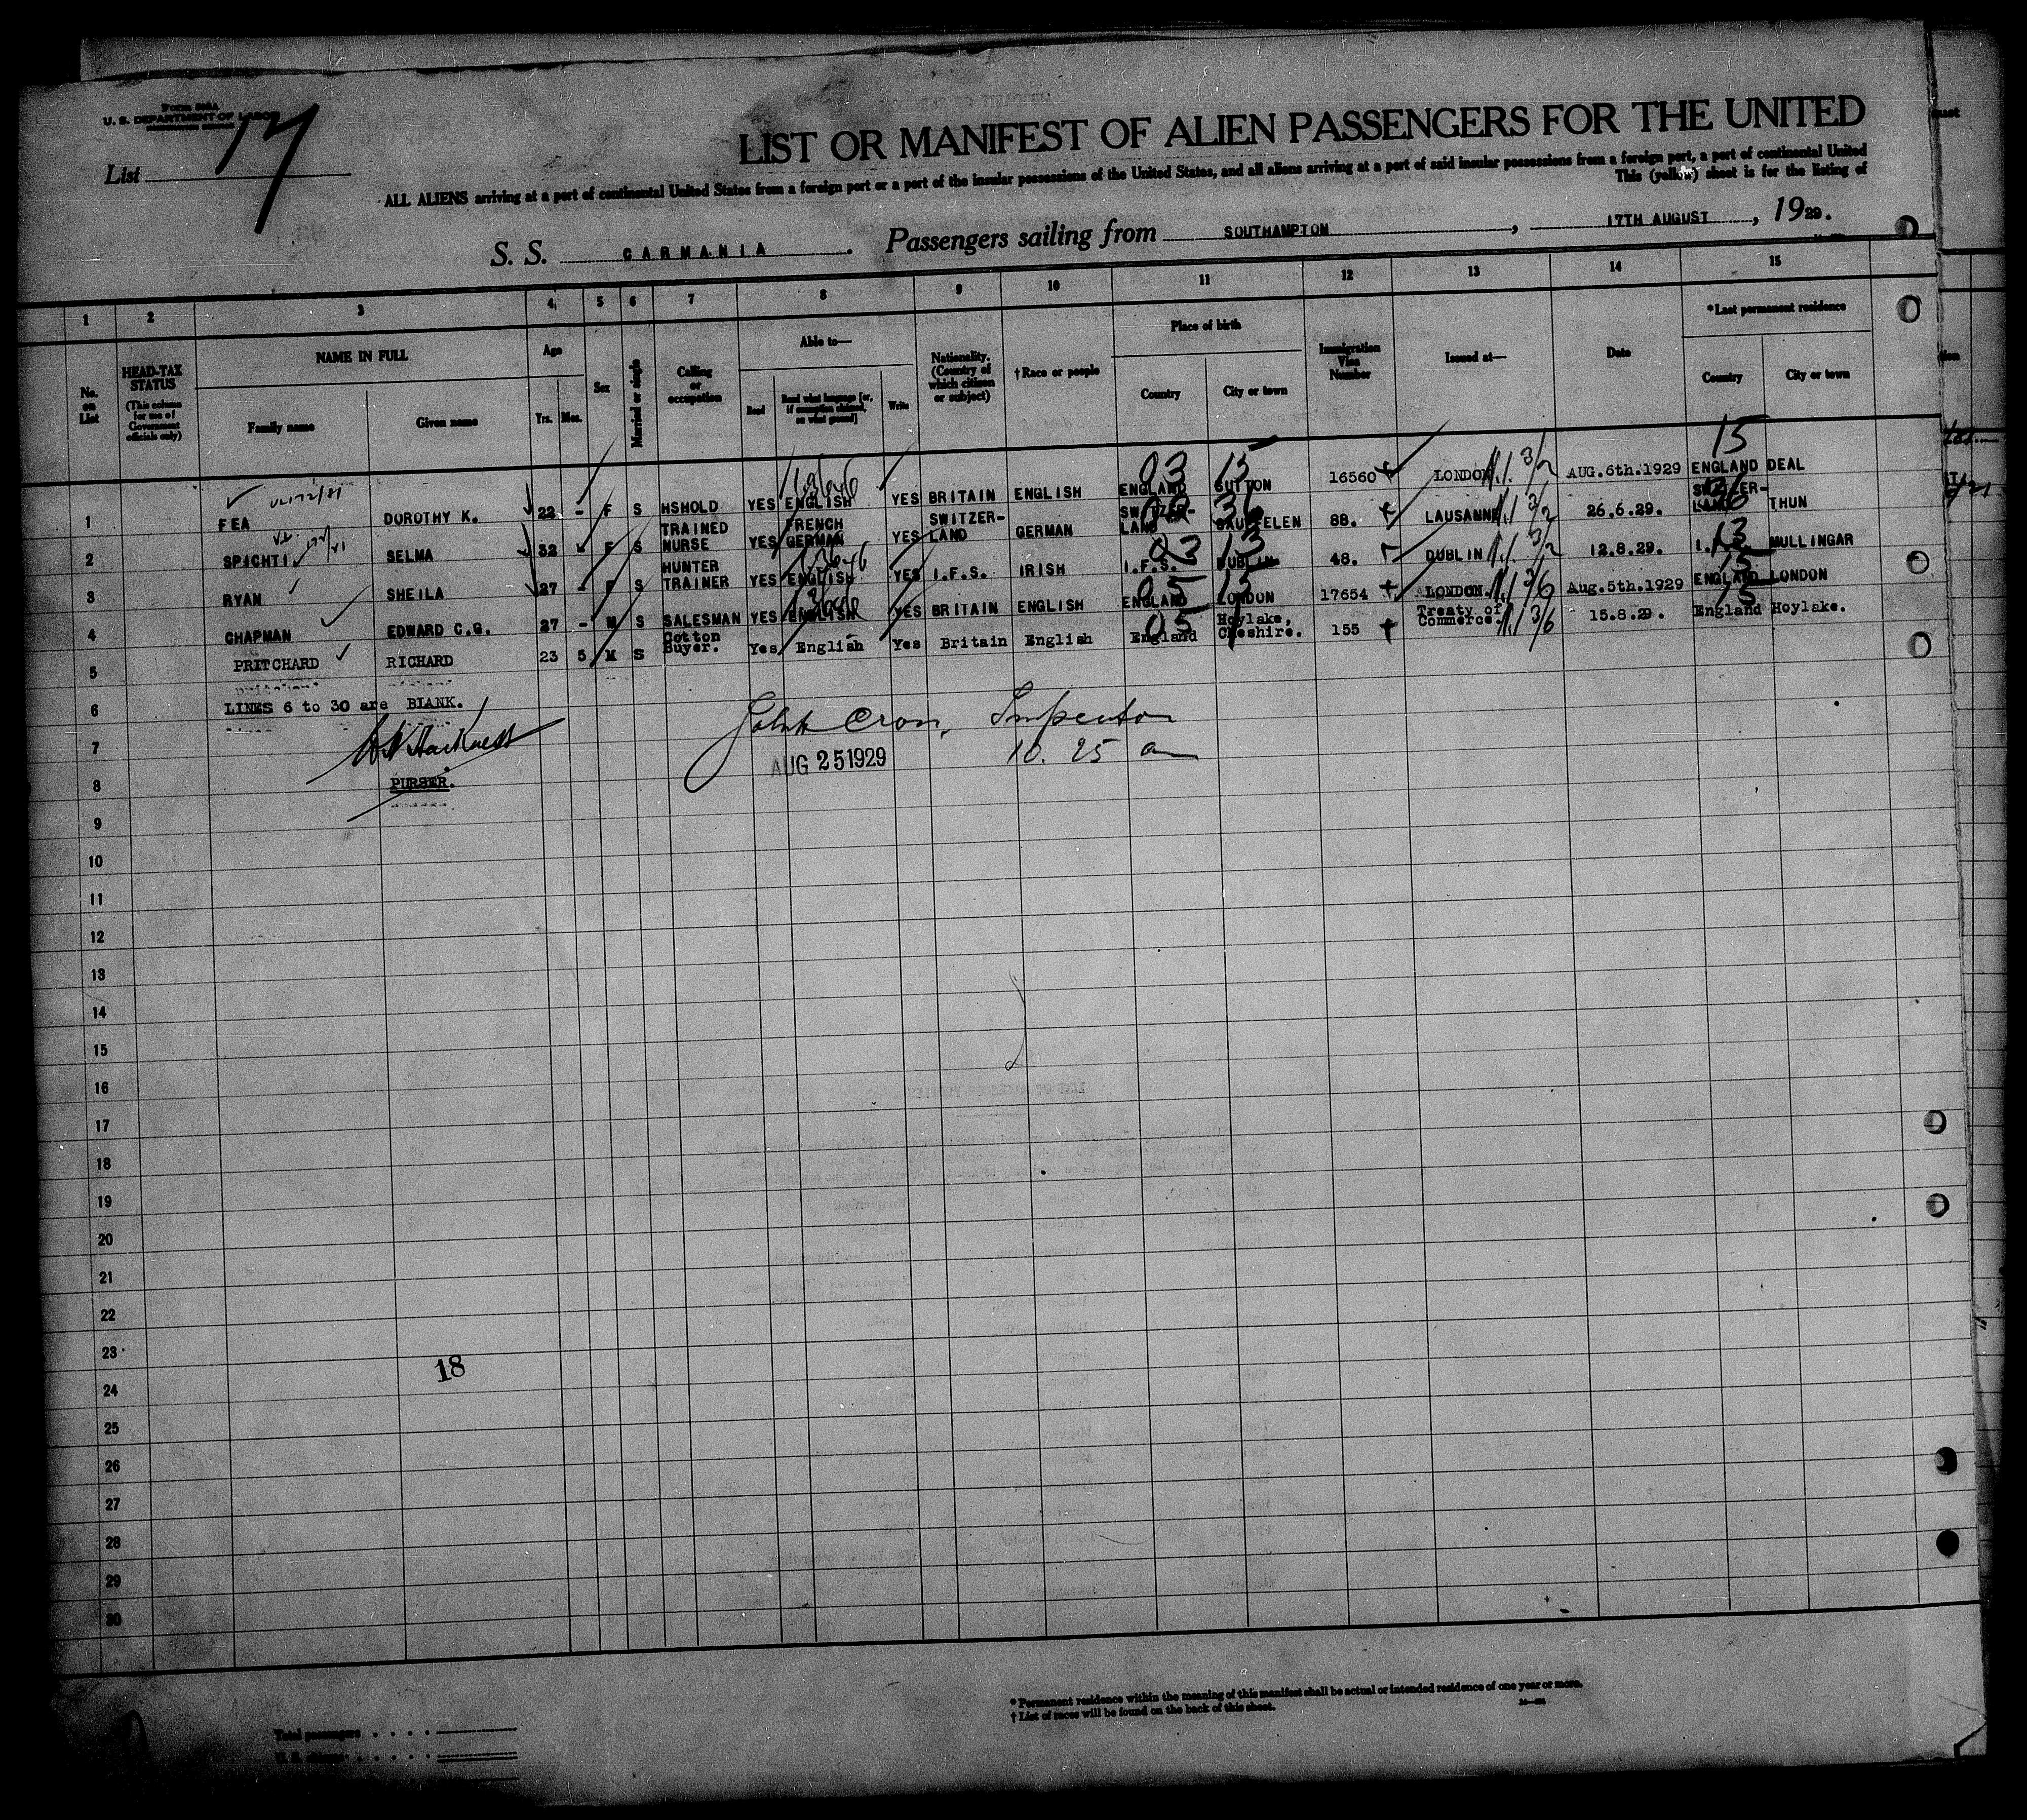 Form 500A
U. S. DEPARTMENT OF LABOR
List 17
LIST OR MANIFEST OF ALIEN PASSENGERS FOR THE UNITED
ALL ALIENS arriving at a port of continental United States from a foreign port or a port of the insular possessions of the United States, and all aliens arriving at a port of said insular possessions from a foreign port, a port of continental United
This (yellow) sheet is for the listing of
S. S. CARMANIA. Passengers sailing from SOUTHAMPTON, 17TH AUGUST, 1929.
1 2 3 4 5 6 7 8 9 10 11 12 13 14 15
No. on List
HEAD-TAX STATUS (This column for use of Government officials only)
NAME IN FULL
Family name Given name
Age
Yrs. Mos.
Sex
Married or single
Calling or occupation
Able to—
Read Read what language [or, if exemption claimed, on what ground] Write
Nationality. (Country of which citizen or subject)
†Race or people
Place of birth
Country City or town
Immigration Visa Number
Issued at—
Date
*Last permanent residence
Country City or town
1 FEA DOROTHY K. 22 - F S HSHOLD YES ENGLISH YES BRITAIN ENGLISH ENGLAND SUTTON 16560 LONDON AUG.6th.1929 ENGLAND DEAL
2 SPICHTI SELMA 32 - F S TRAINED NURSE YES FRENCH GERMAN YES SWITZER-LAND GERMAN SWITZER-LAND 88. LAUSANNE 26.6.29. SWITZER-LAND THUN
3 RYAN SHEILA 27 - F S HUNTER TRAINER YES ENGLISH YES I.F.S. IRISH I.F.S. DUBLIN 48. DUBLIN 12.8.29. MULLINGAR
4 CHAPMAN EDWARD C.G. 27 - M S SALESMAN YES ENGLISH YES BRITAIN ENGLISH ENGLAND LONDON 17654 LONDON Aug.5th.1929 ENGLAND LONDON
5 PRITCHARD RICHARD 23 5 M S Cotton Buyer. Yes English Yes Britain English England Hoylake, Cheshire. 155 Treaty of Commerce. 15.8.29. England Hoylake.
6 LINES 6 to 30 are BLANK.
7
John Cron, Inspector
AUG 25 1929 10.25 am
8 PURSER.
9
10
11
12
13
14
15
16
17
18
19
20
21
22
23
18
24
25
26
27
28
29
30
*Permanent residence within the meaning of this manifest shall be actual or intended residence of one year or more.
†List of races will be found on the back of this sheet.
Total passengers
U. S. citizens